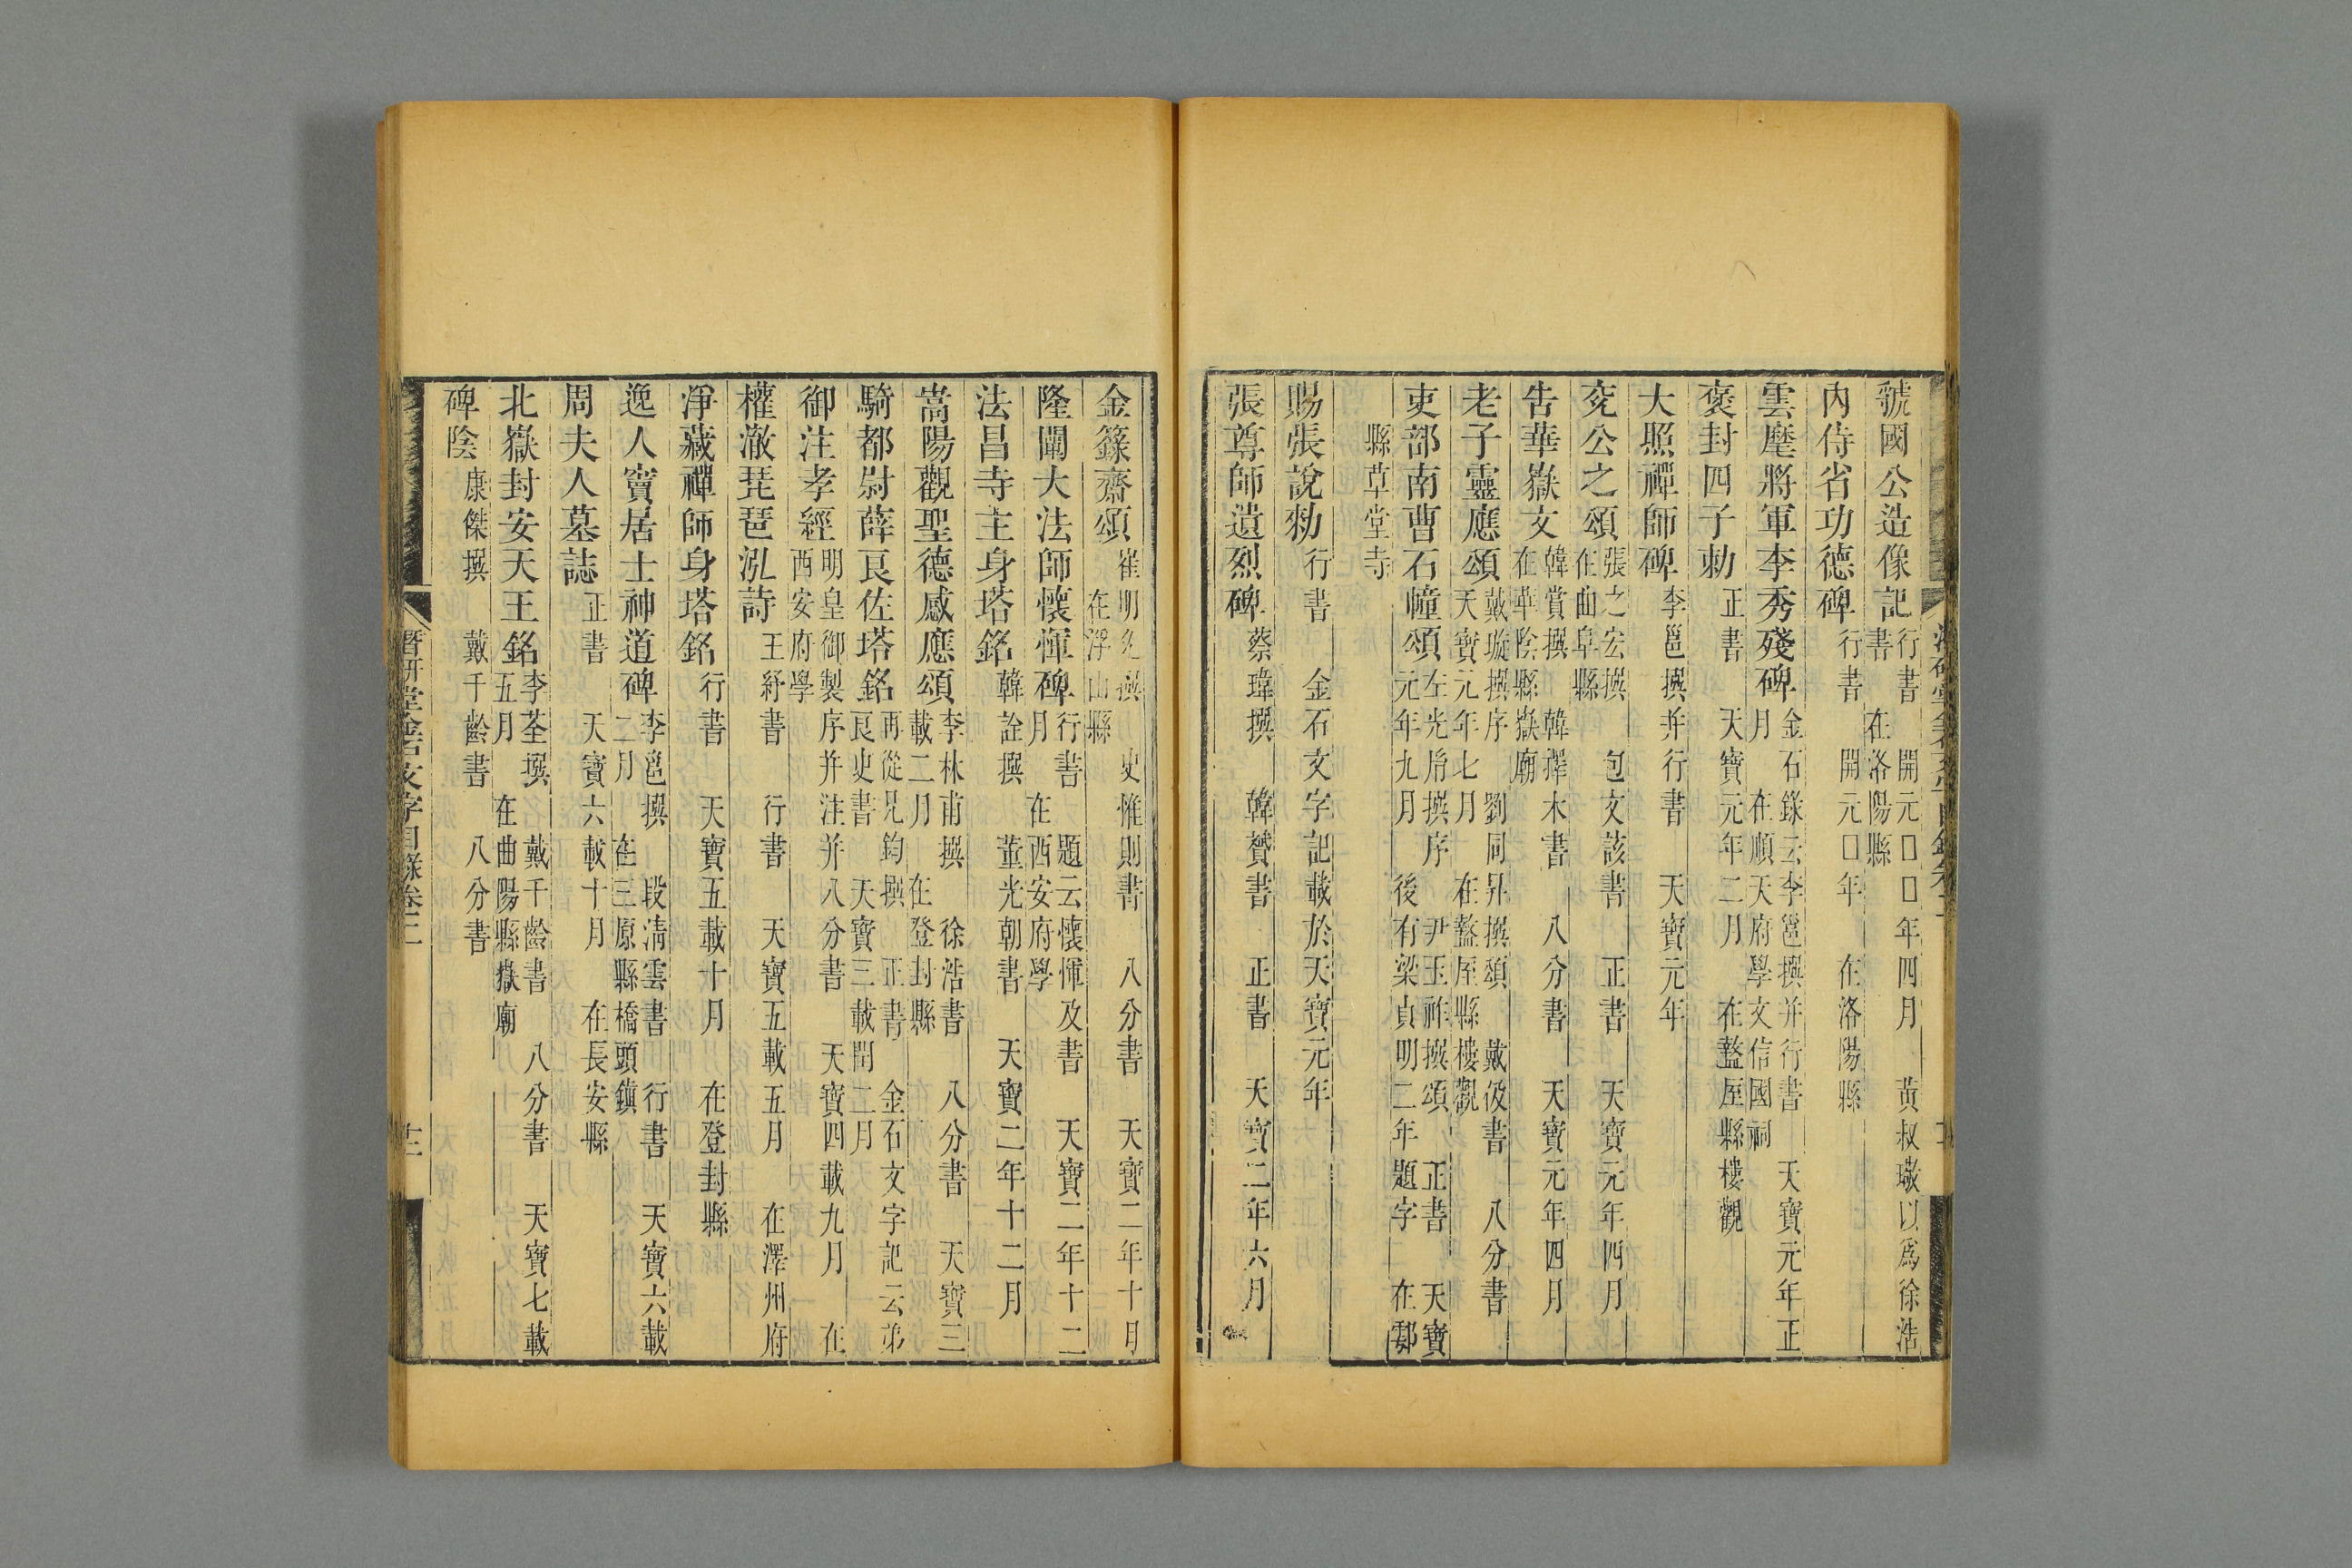 虢國公造像記 行書 開元□□年四月 黃叔璥以爲徐浩
書 在洛陽縣
內侍省功德碑 行書 開元□年 在洛陽縣
雲麾將軍李秀殘碑 金石錄云李邕撰并行書 天寶元年正
月 在順天府學文信國祠
褒封四子勅 正書 天寶元年二月 在盩厔縣樓觀
大照禪師碑 李邕撰并行書 天寶元年
兗公之頌 張之宏撰 包文該書 正書 天寶元年四月
在曲阜縣
告華嶽文 韓賞撰 韓擇木書 八分書 天寶元年四月
在華陰縣嶽廟
老子靈應頌 戴璇撰序 劉同昇撰頌 戴伋書 八分書
天寶元年七月 在盩厔縣樓觀
吏部南曹石幢頌 左光胤撰序 尹玉祚撰頌 正書 天寶
元年九月 後有梁貞明二年題字 在鄠
縣草堂寺
賜張說勅 行書 金石文字記載於天寶元年
張尊師遺烈碑 蔡瑋撰 韓賛書 正書 天寶二年六月
金籙齋頌 崔明允撰 史惟則書 八分書 天寶二年十月
在浮山縣
隆闡大法師懷惲碑 行書 題云懷惲及書 天寶二年十二
月 在西安府學
法昌寺主身塔銘 韓詮撰 董光朝書 天寶二年十二月
嵩陽觀聖德感應頌 李林甫撰 徐浩書 八分書 天寶三
載二月 在登封縣
騎都尉薛良佐塔銘 再從兄鈞撰 正書 金石文字記云弟
良史書 天寶三載閏二月
御注孝經 明皇御製序并注并八分書 天寶四載九月 在
西安府學
權澈琵琶泓詩 王紓書 行書 天寶五載五月 在澤州府
淨藏禪師身塔銘 行書 天寶五載十月 在登封縣
逸人竇居士神道碑 李邕撰 段清雲書 行書 天寶六載
二月 在三原縣橋頭鎮
周夫人墓誌 正書 天寶六載十月 在長安縣
北嶽封安天王銘 李荃撰 戴千齡書 八分書 天寶七載
五月 在曲陽縣嶽廟
碑陰 康傑撰 戴千齡書 八分書
潛研堂金石文字目錄卷二 十二